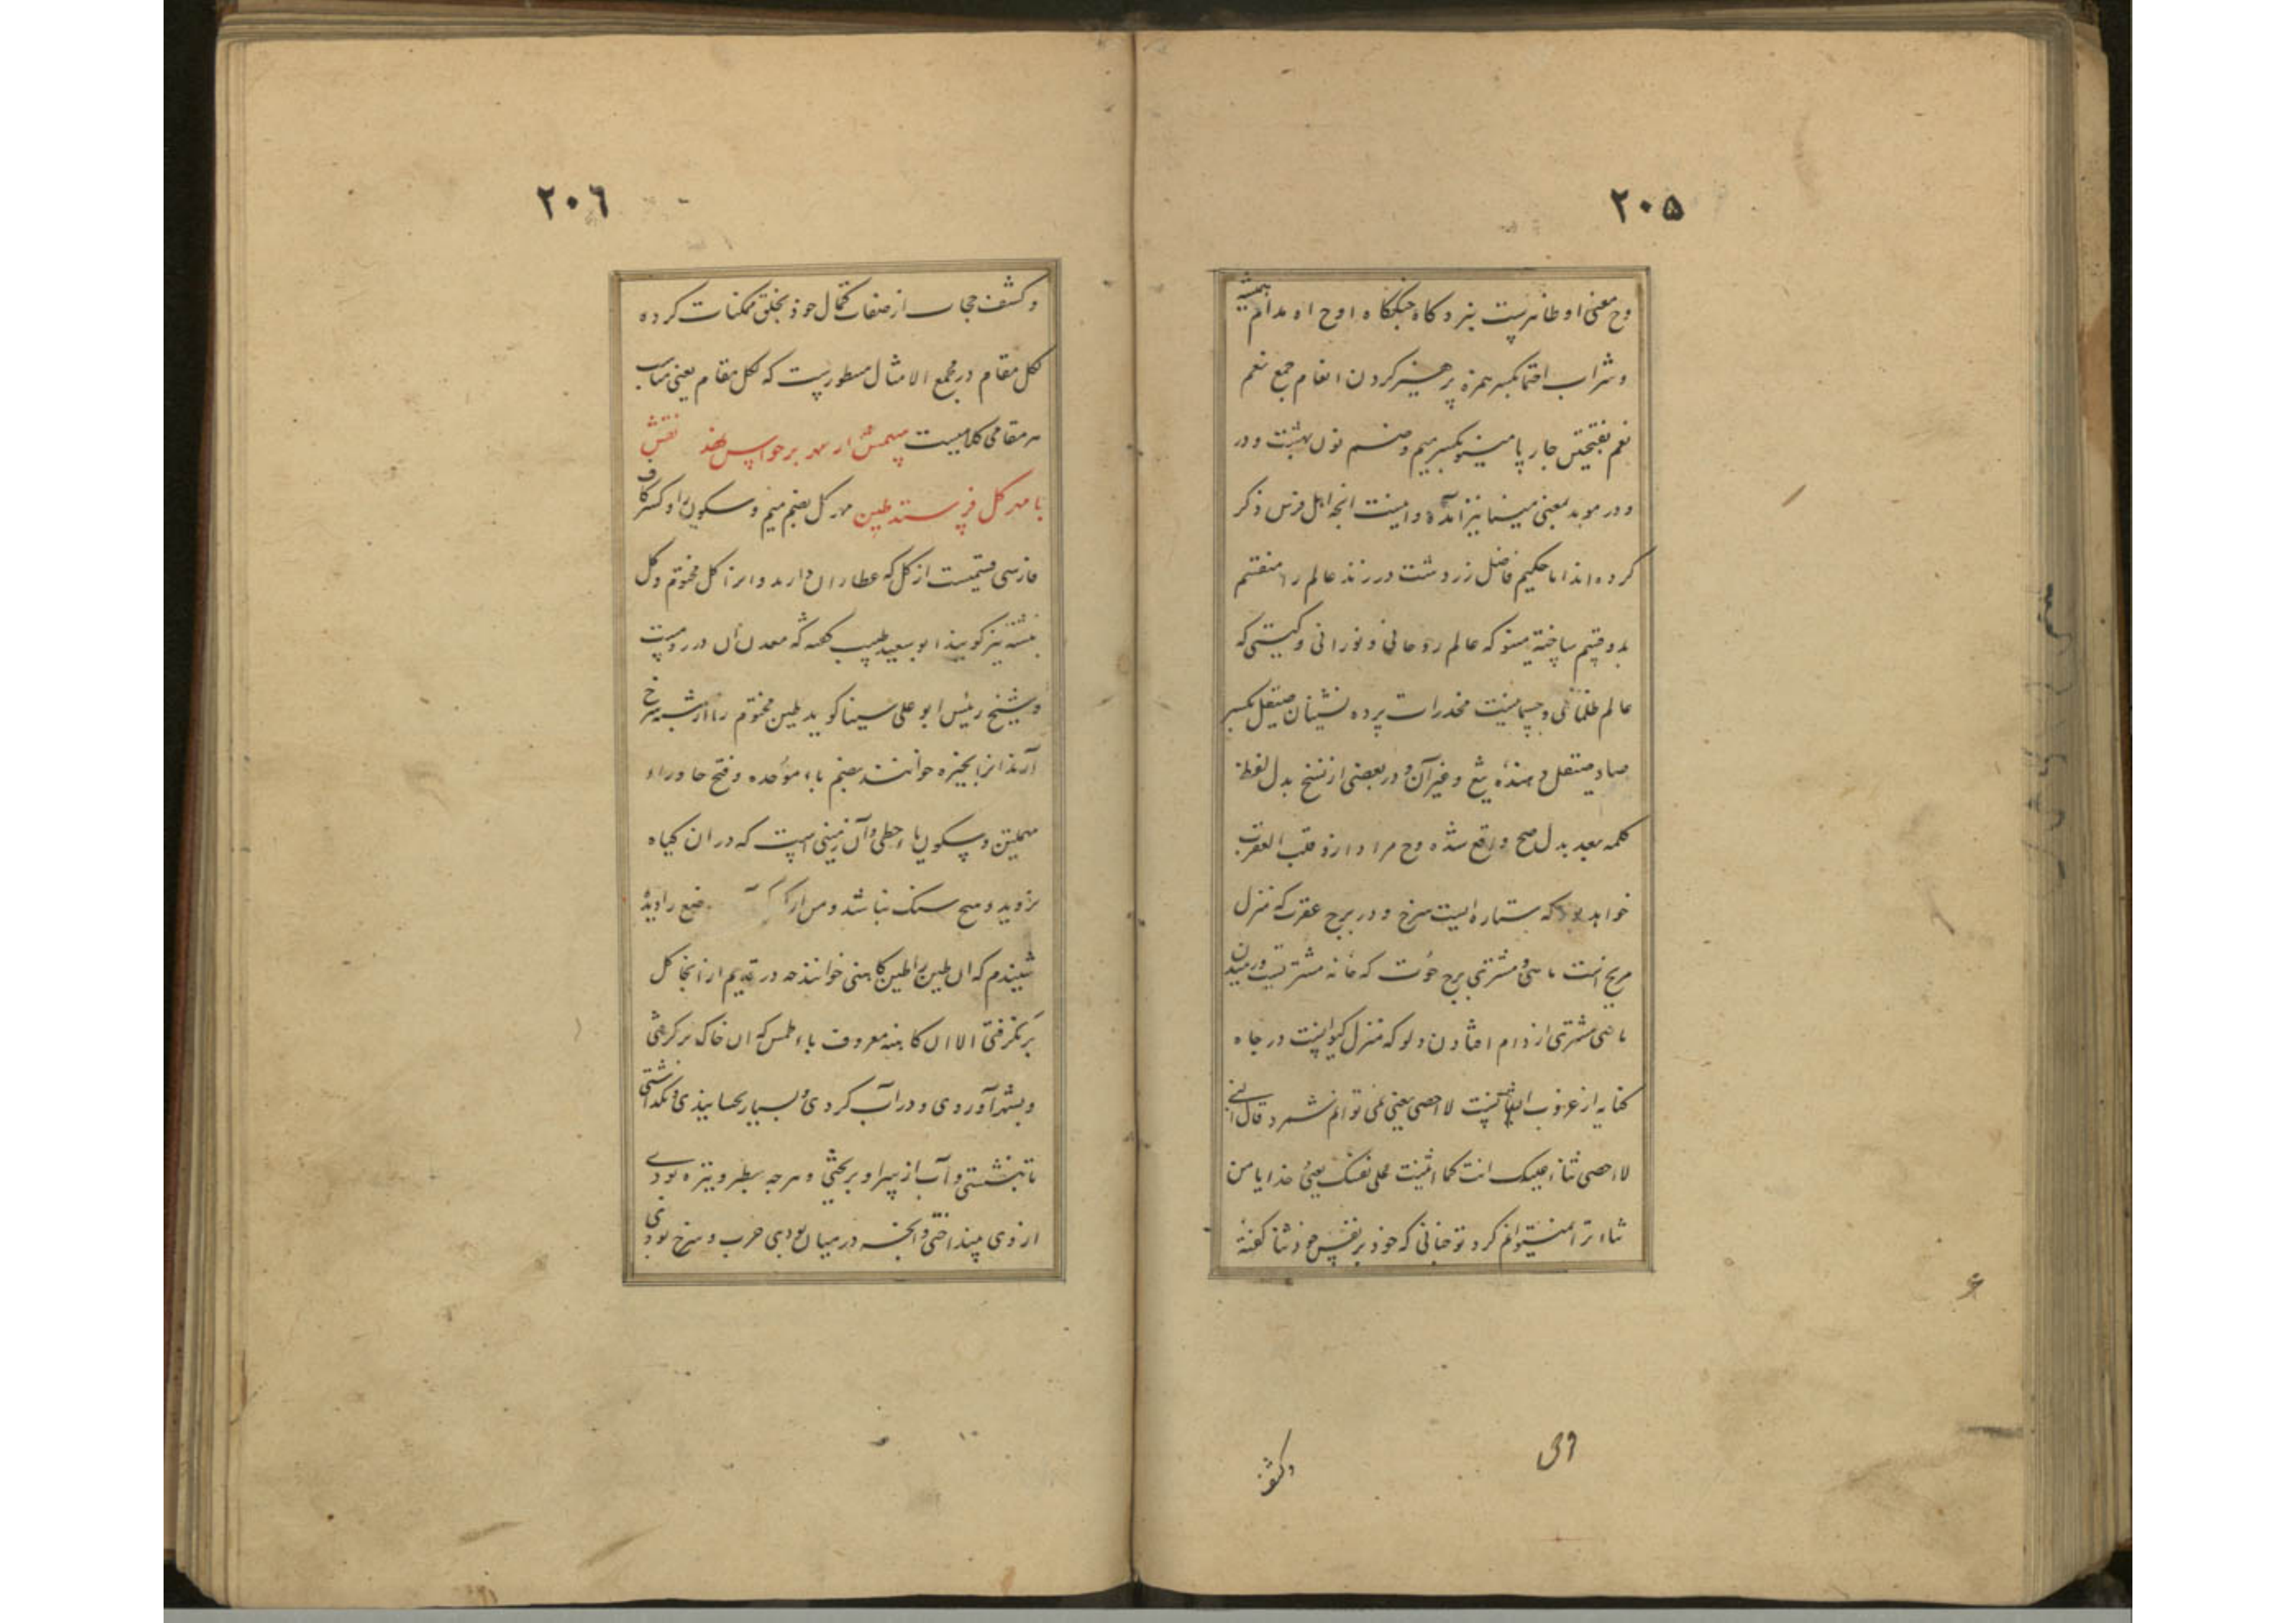 ۲۰۵
وح معنی او ظاهرست نبردگاه جنگگاه اوح او مدام همیشه
و شراب احتما بکسر همزه پرهیز کردن انعام جمع نعم
نعم بفتحتین چارپا مینو بکسر میم و ضم نون بهشت و در
و در موبد بمعنی مینا نیز آمده و اینست انچه اهل فرس ذکر
کرده اند اما حکیم فاضل زردشت در زند عالم را منقسم
بدو قسم ساخته مینو که عالم روحانی و نورانی و گیتی که
عالم ظلمانی و جسمانیست مخدرات پرده نشینان صیقل بکسر
صاد صیقل دهنده تیغ و غیر آن و در بعضی از نسخ بدل لفظ
کلمه بعد بدل صح واقع شده وح مراد ازو قلب العقرب
خواهد بود که ستاره ایست سرخ و در برج عقرب که منزل
مریخ است ماهی مشتری برج حوت که خانه مشتریست و رمیدن
ماهی مشتری از دام افتادن دلو که منزل کیوانست در چاه
کنایه از غروب لا احصی یعنی نمی توانم شمرد قال النبی
لا احصی ثناء علیک انت کما اثنیت علی نفسک یعنی خدایا من
ثناء ترا نمیتوانم کرد تو چنانی که خود بر نفس خود ثنا گفتهٔ
وکشف
۲۰۶
و کشف حجاب از صفات کمال خود بخلق ممکنات کرده
لکل مقام در مجمع الامثال مسطورست که لکل مقام یعنی مناسب
هر مقامی کلامیست مهمش از مهر بر حواس نهند نقش
با مهر گل فرستد طین مهر گل بضم میم و سکون را و کسر کاف
فارسی قسمیست از گل که عطاران دارند و انرا گل مختوم و گل
نبشته نیز گویند ابو سعید طبیب گفته که معدن آن در رومست
و شیخ رئیس ابو علی سینا گوید طین مختوم را از سرخ
آرند انرا بحیره خوانند بضم باء موحده و فتح حا و راء
مهملتین و سکون یاء حطی و آن زمینی است که در ان گیاه
نروید و هیچ سنگ نباشد و من از
شنیدم که ان طین را طین کاهنی خوانند چه در قدیم از انجا گل
برنگرفتی الا ان کاهنه معروف باطمس که ان خاک برگرفتی
و بشهر آوردی و در آب کردی و بسیار بجسانیدی و بگذاشتی
تا بنشستی و آب از سر او بریختی و هرچه سطبر و تیره بودی
از وی بینداختی و آنچه در میان بودی چرب و سرخ بودی